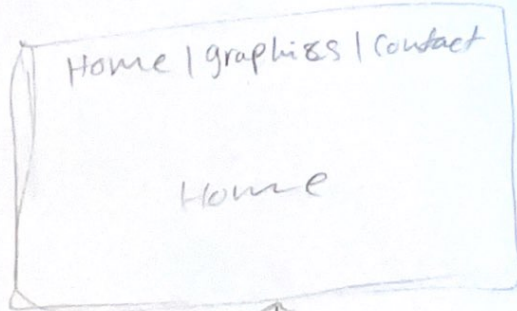 Home | graphics | Contact
Home